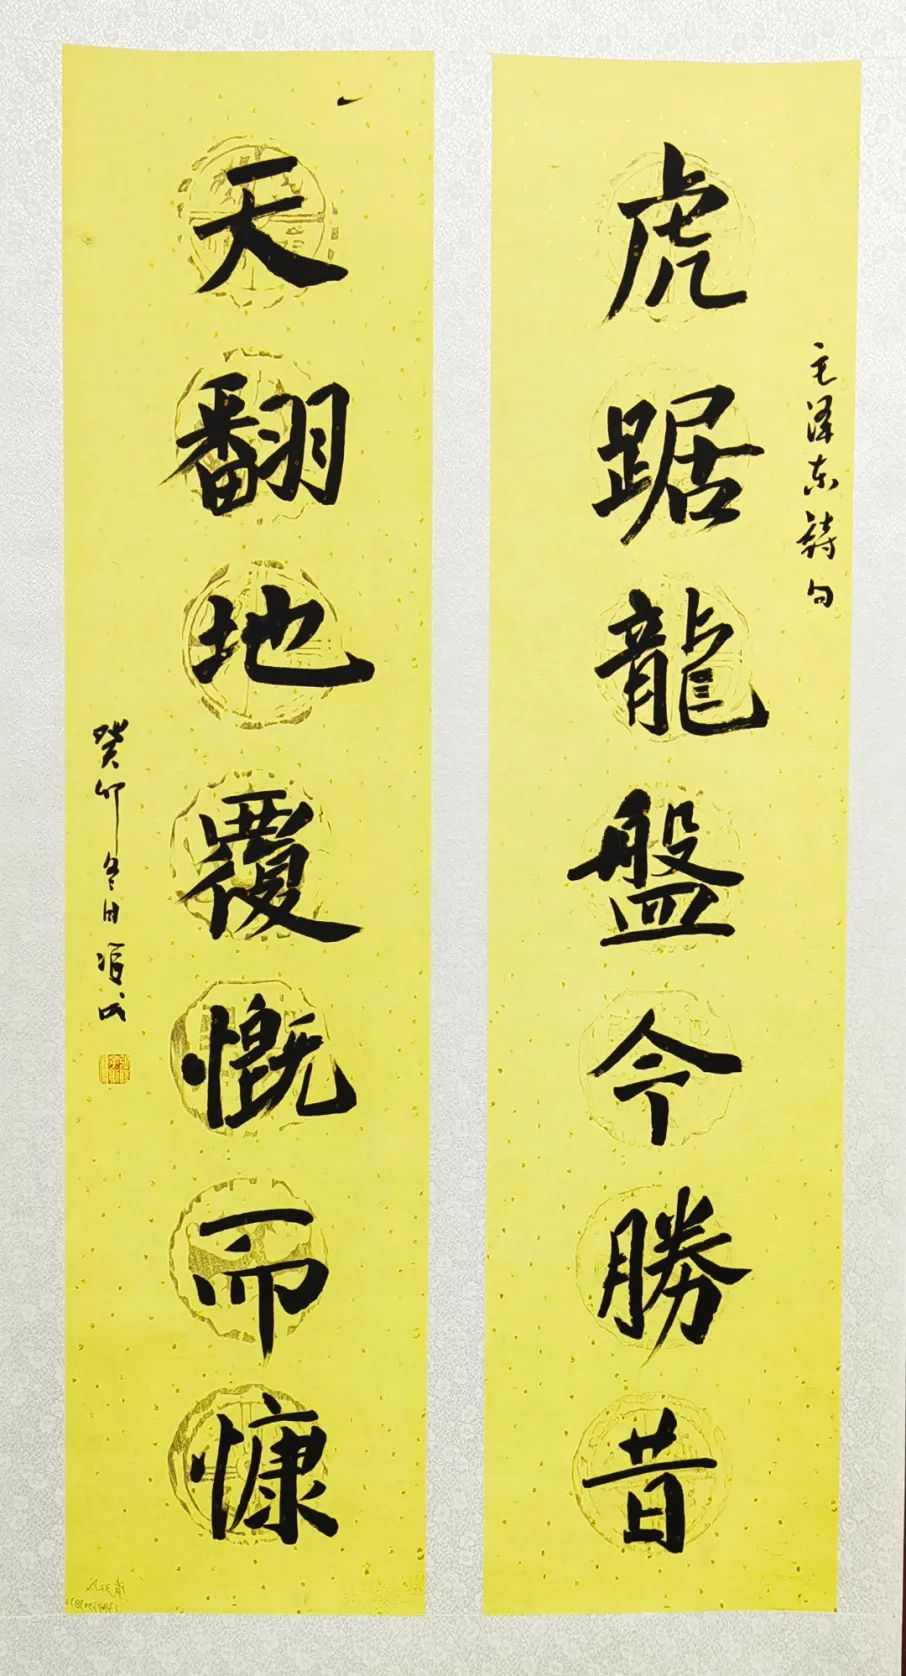 毛泽东詩句
虎踞龍盤今勝昔
天翻地覆慨而慷
癸卯冬日